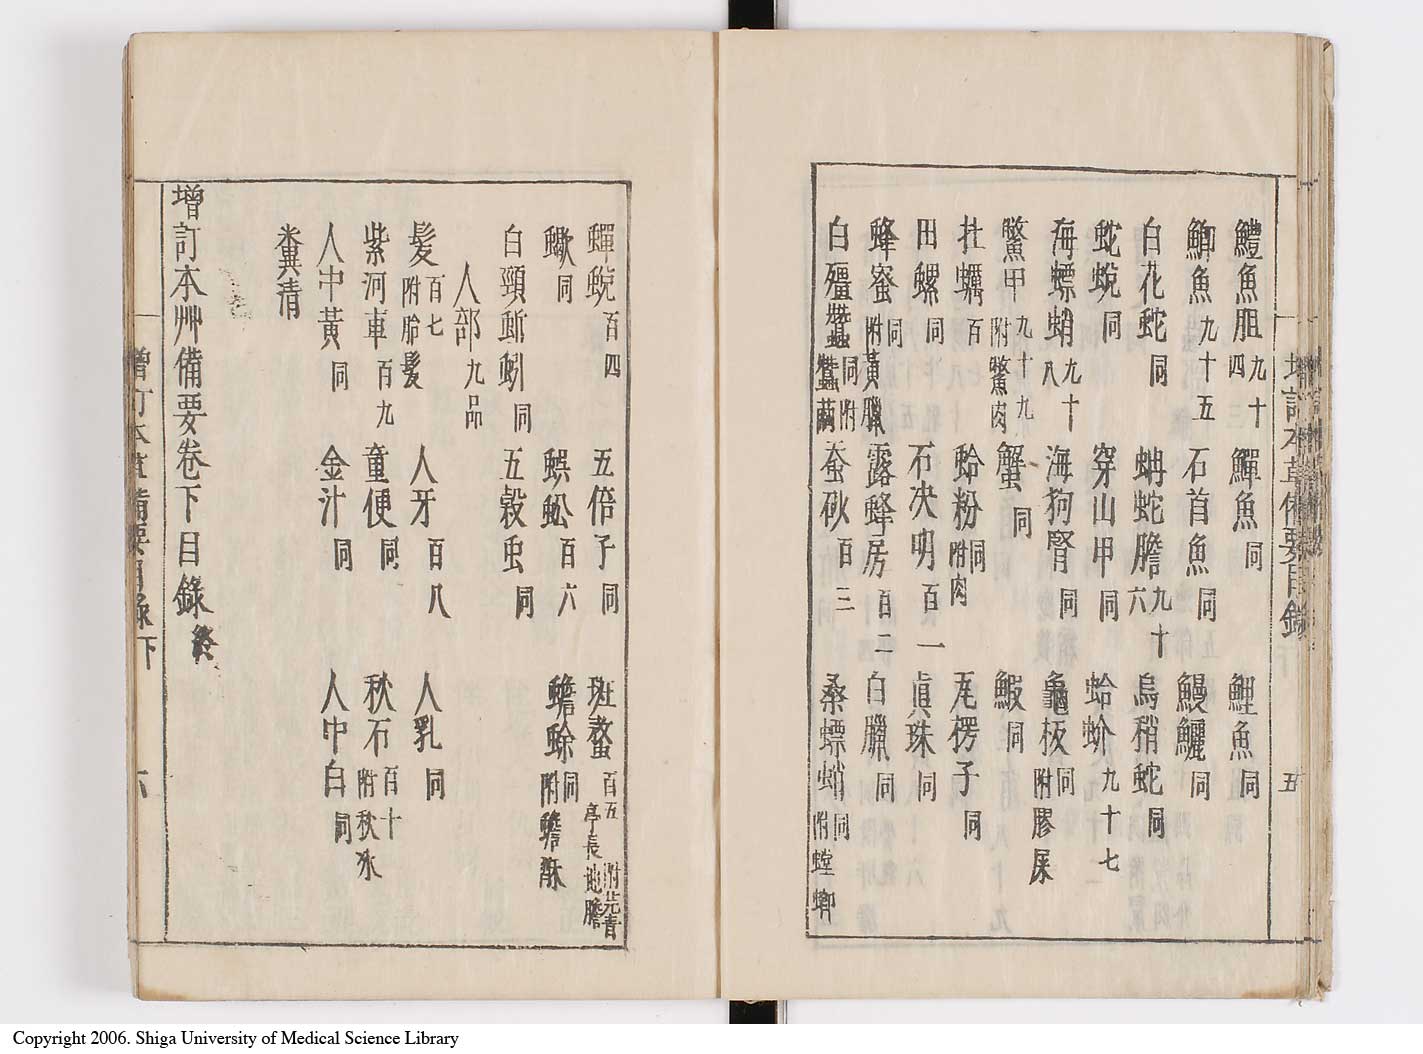 鱧魚胆九十四 鱓魚同 鯉魚同
鯽魚九十五 石首魚同 鰻鱺同
白花蛇同 蚺蛇膽九十六 烏稍蛇同
蛇蛻同 穿山甲同 蛤蚧九十七
海螵蛸九十八 海狗腎同 龜板同附膠尿
鱉甲九十九附鱉肉 蟹同 鰕同
牡蠣百 蛤粉同附肉 瓦楞子同
田螺同 石決明百一 真珠同
蜂蜜同附黃臘 露蜂房百二 白臘同
白殭蠶同附蠶繭 蚕砂百三 桑螵蛸同附螳螂
増訂本草備要目錄
五
蟬蛻百四 五倍子同 斑蝥百五附芫青亭長地膽
蠍同 蜈蚣百六 蟾蜍同附蟾酥
白頸蚯蚓同 五穀虫同
人部九品
髮百七附胎髮 人牙百八 人乳同
紫河車百九 童便同 秋石百十附秋氷
人中黃同 金汁同 人中白同
糞清
增訂本艸備要卷下目錄終
增訂本草備要目錄下
六
Copyright 2006. Shiga University of Medical Science Library